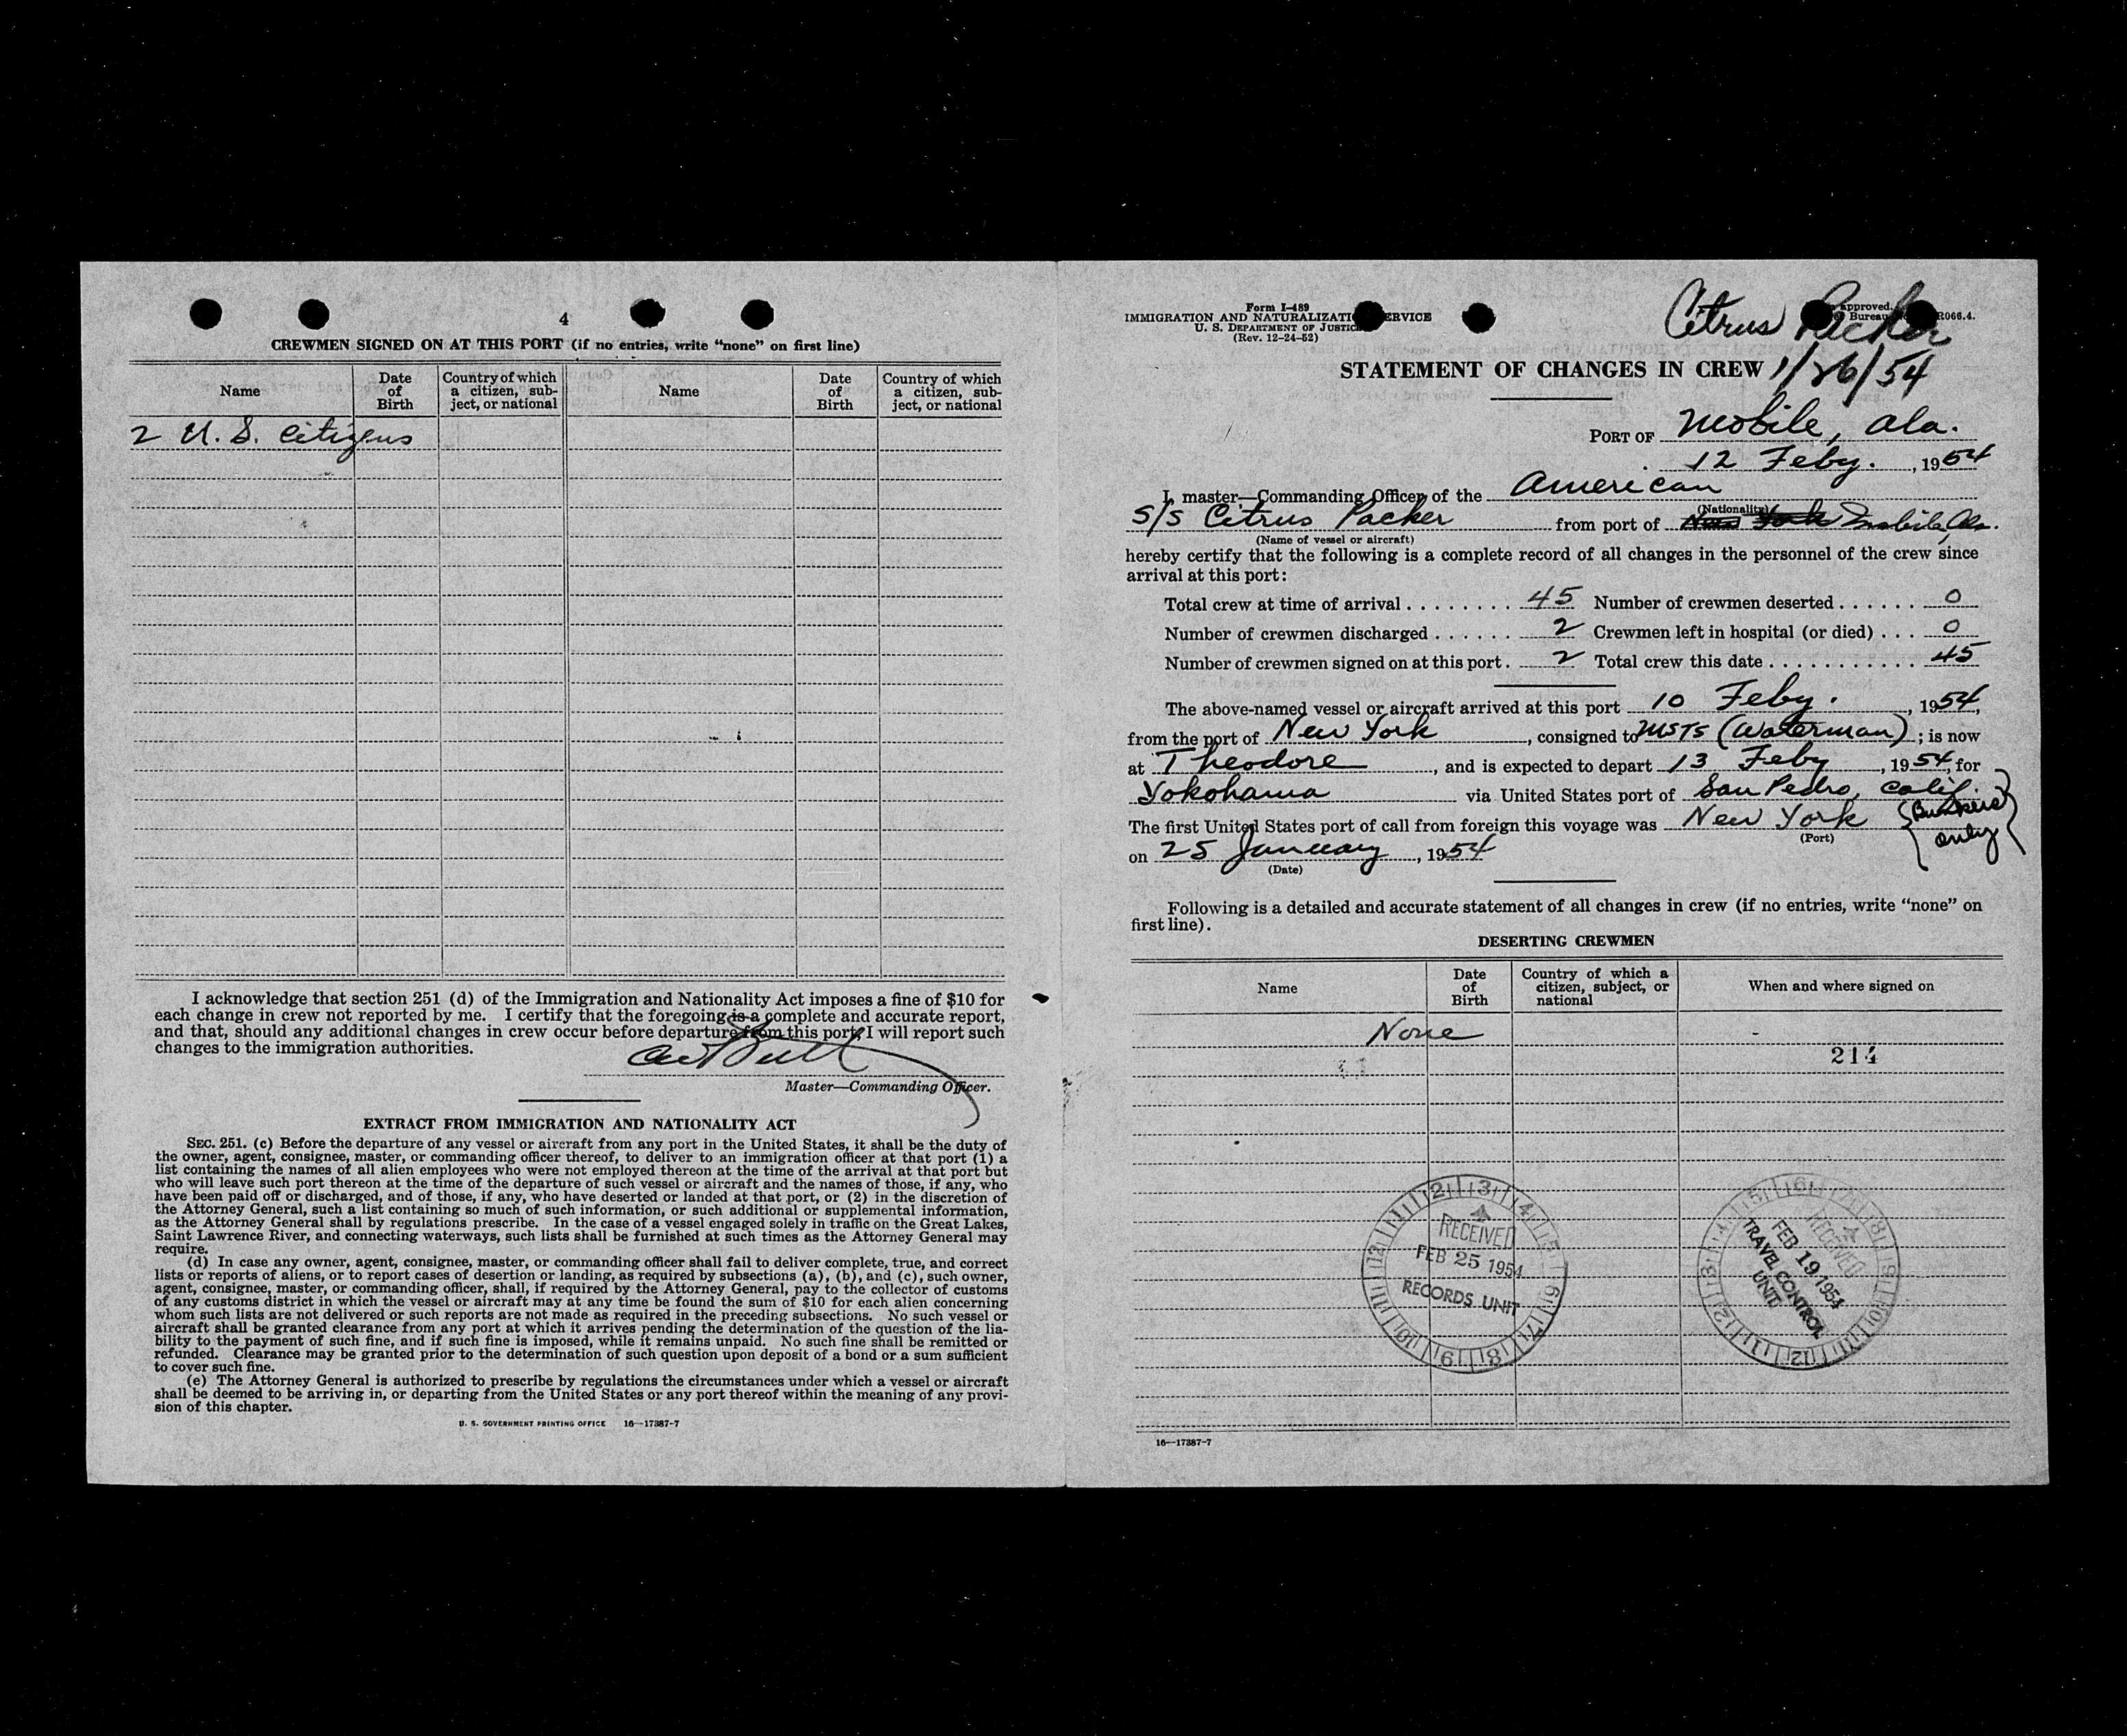 4
CREWMEN SIGNED ON AT THIS PORT (if no entries, write “none” on first line)
Name
Date of Birth
Country of which a citizen, subject, or national
Name
Date of Birth
Country of which a citizen, subject, or national
2 U. S. Citizens
I acknowledge that section 251 (d) of the Immigration and Nationality Act imposes a fine of $10 for
each change in crew not reported by me. I certify that the foregoing is a complete and accurate report,
and that, should any additional changes in crew occur before departure from this port, I will report such
changes to the immigration authorities.
Master—Commanding Officer.
EXTRACT FROM IMMIGRATION AND NATIONALITY ACT
SEC. 251. (c) Before the departure of any vessel or aircraft from any port in the United States, it shall be the duty of
the owner, agent, consignee, master, or commanding officer thereof, to deliver to an immigration officer at that port (1) a
list containing the names of all alien employees who were not employed thereon at the time of the arrival at that port but
who will leave such port thereon at the time of the departure of such vessel or aircraft and the names of those, if any, who
have been paid off or discharged, and of those, if any, who have deserted or landed at that port, or (2) in the discretion of
the Attorney General, such a list containing so much of such information, or such additional or supplemental information,
as the Attorney General shall by regulations prescribe. In the case of a vessel engaged solely in traffic on the Great Lakes,
Saint Lawrence River, and connecting waterways, such lists shall be furnished at such times as the Attorney General may
require.
(d) In case any owner, agent, consignee, master, or commanding officer shall fail to deliver complete, true, and correct
lists or reports of aliens, or to report cases of desertion or landing, as required by subsections (a), (b), and (c), such owner,
agent, consignee, master, or commanding officer, shall, if required by the Attorney General, pay to the collector of customs
of any customs district in which the vessel or aircraft may at any time be found the sum of $10 for each alien concerning
whom such lists are not delivered or such reports are not made as required in the preceding subsections. No such vessel or
aircraft shall be granted clearance from any port at which it arrives pending the determination of the question of the lia-
bility to the payment of such fine, and if such fine is imposed, while it remains unpaid. No such fine shall be remitted or
refunded. Clearance may be granted prior to the determination of such question upon deposit of a bond or a sum sufficient
to cover such fine.
(e) The Attorney General is authorized to prescribe by regulations the circumstances under which a vessel or aircraft
shall be deemed to be arriving in, or departing from the United States or any port thereof within the meaning of any provi-
sion of this chapter.
U. S. GOVERNMENT PRINTING OFFICE 16—17387-7
Form I-489
IMMIGRATION AND NATURALIZATI SERVICE
U. S. DEPARTMENT OF JUSTICE
(Rev. 12-24-52)
approved.
Bureau R066.4.
Citrus Packer
1/26/54
STATEMENT OF CHANGES IN CREW
PORT OF Mobile, Ala.
12 Feby. , 1954
I, master—Commanding Officer, of the American
(Nationality)
S/S Citrus Packer from port of New York Mobile, Ala.
(Name of vessel or aircraft)
hereby certify that the following is a complete record of all changes in the personnel of the crew since
arrival at this port:
Total crew at time of arrival . . . . . . . . 45 Number of crewmen deserted . . . . . . 0
Number of crewmen discharged . . . . . . 2 Crewmen left in hospital (or died) . . . 0
Number of crewmen signed on at this port . 2 Total crew this date . . . . . . . . . . . 45
The above-named vessel or aircraft arrived at this port 10 Feby. , 1954,
from the port of New York , consigned to MSTS (Waterman) ; is now
at Theodore , and is expected to depart 13 Feby , 1954, for
Yokohama via United States port of San Pedro, Calif.
(Bunkers only)
The first United States port of call from foreign this voyage was New York
(Port)
on 25 January , 1954
(Date)
Following is a detailed and accurate statement of all changes in crew (if no entries, write “none” on
first line).
DESERTING CREWMEN
Name
Date of Birth
Country of which a citizen, subject, or national
When and where signed on
None
214
RECEIVED
FEB 25 1954
RECORDS UNIT
RECEIVED
FEB 19 1954
TRAVEL CONTROL
UNIT
16—17387-7